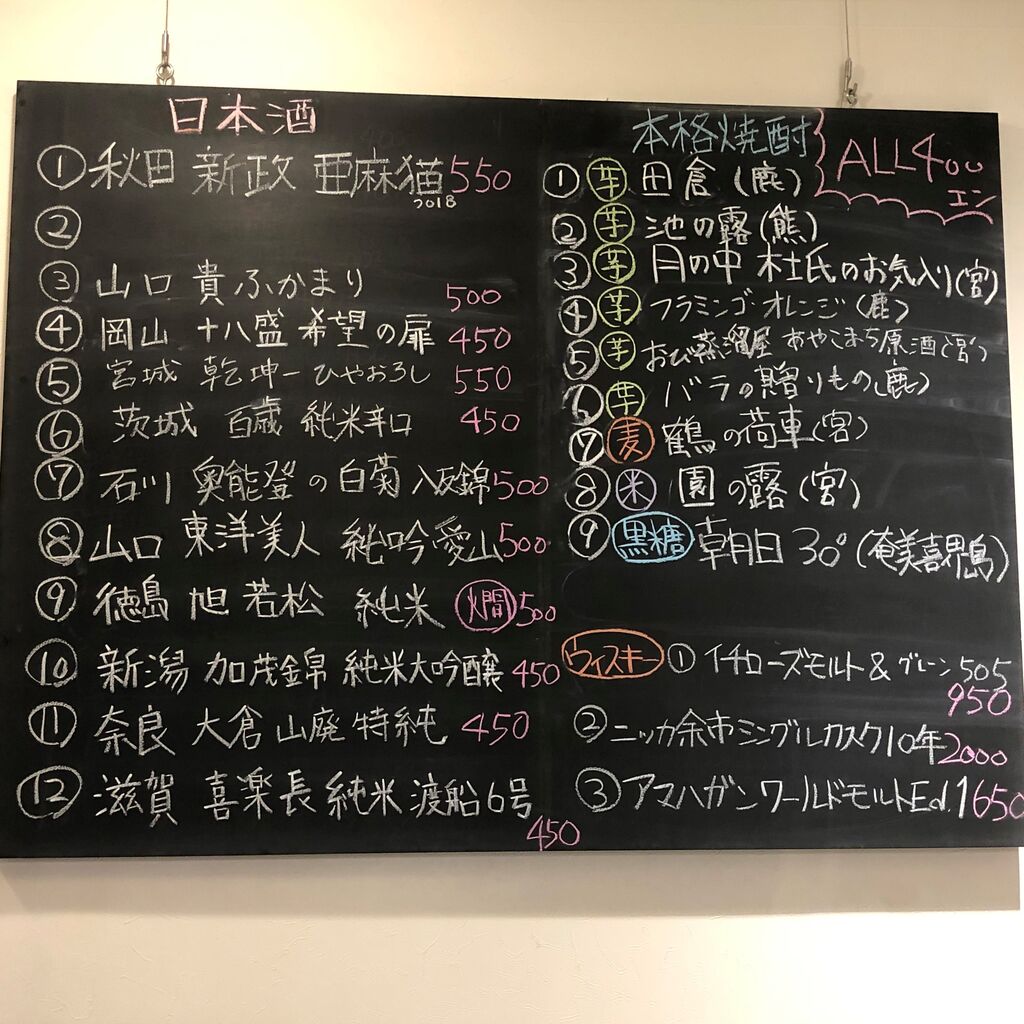 日本酒
① 秋田 新政 亜麻猫 550
2018
②
③ 山口 貴 ふかまり 500
④ 岡山 十八盛 希望の扉 450
⑤ 宮城 乾坤一 ひやおろし 550
⑥ 茨城 百歳 純米辛口 450
⑦ 石川 奥能登の白菊 八反錦 500
⑧ 山口 東洋美人 純吟 愛山 500
⑨ 徳島 旭若松 純米 燗 500
⑩ 新潟 加茂錦 純米大吟醸 450
⑪ 奈良 大倉 山廃 特純 450
⑫ 滋賀 喜楽長 純米 渡船6号
450
本格焼酎
ALL400
エン
① 芋 田倉(鹿)
② 芋 池の露(熊)
③ 芋 月の中 杜氏のお気入り(宮)
④ 芋 フラミンゴオレンジ(鹿)
⑤ 芋 おび蒸溜屋 あやこまち原酒(宮)
⑥ 芋 バラの贈りもの(鹿)
⑦ 麦 鶴の荷車(宮)
⑧ 米 園の露(宮)
⑨ 黒糖 朝日 30°(奄美喜界島)
ウィスキー ① イチローズモルト&グレーン 505
950
② ニッカ余市シングルカスク10年 2000
③ アマハガンワールドモルトEd.1 650